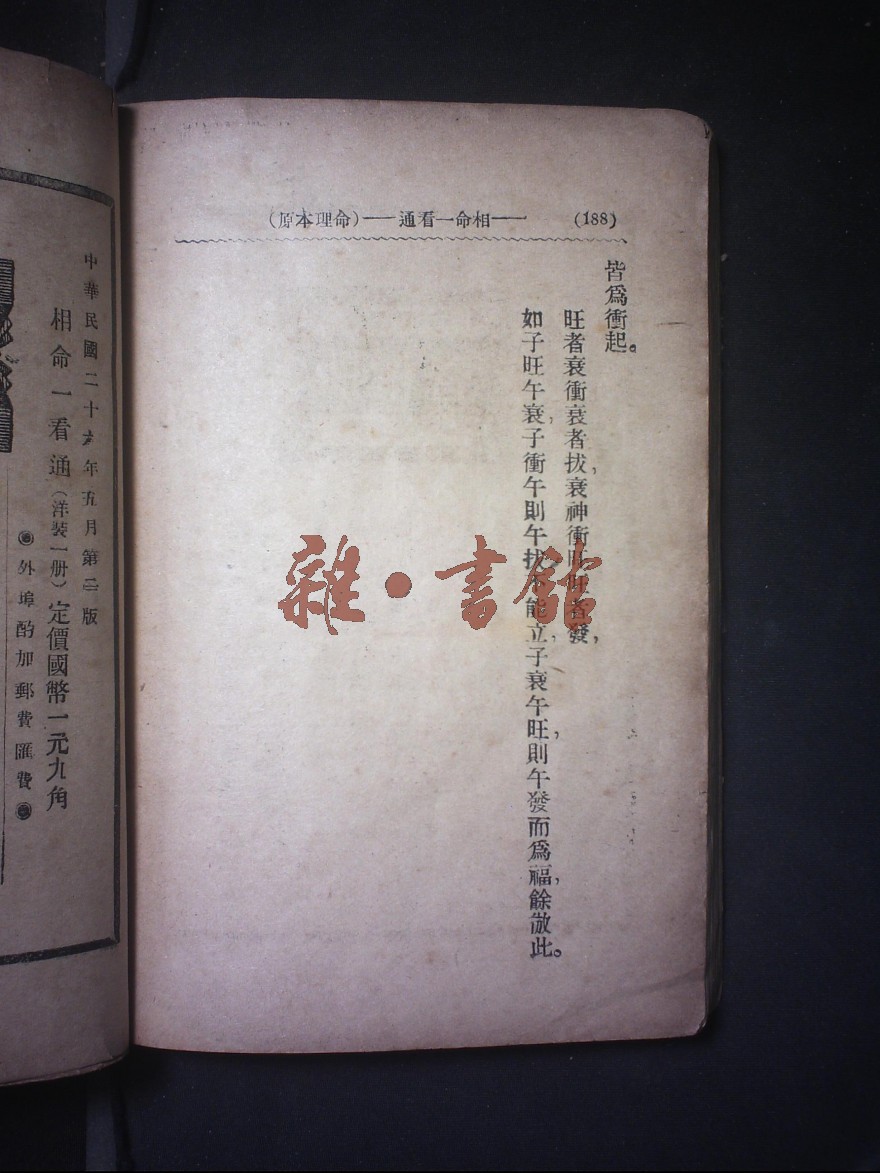 (188) ——相命一看通——(命理本原)
皆爲衝起。
旺者衰衝衰者拔,衰神衝旺旺者發,
如子旺午衰,子衝午則午拔不能立,子衰午旺,則午發而爲福,餘倣此。
雜·書館
中華民國二十六年五月第二版
相命一看通(洋裝一册)定價國幣一元九角
◉外埠酌加郵費匯費◉